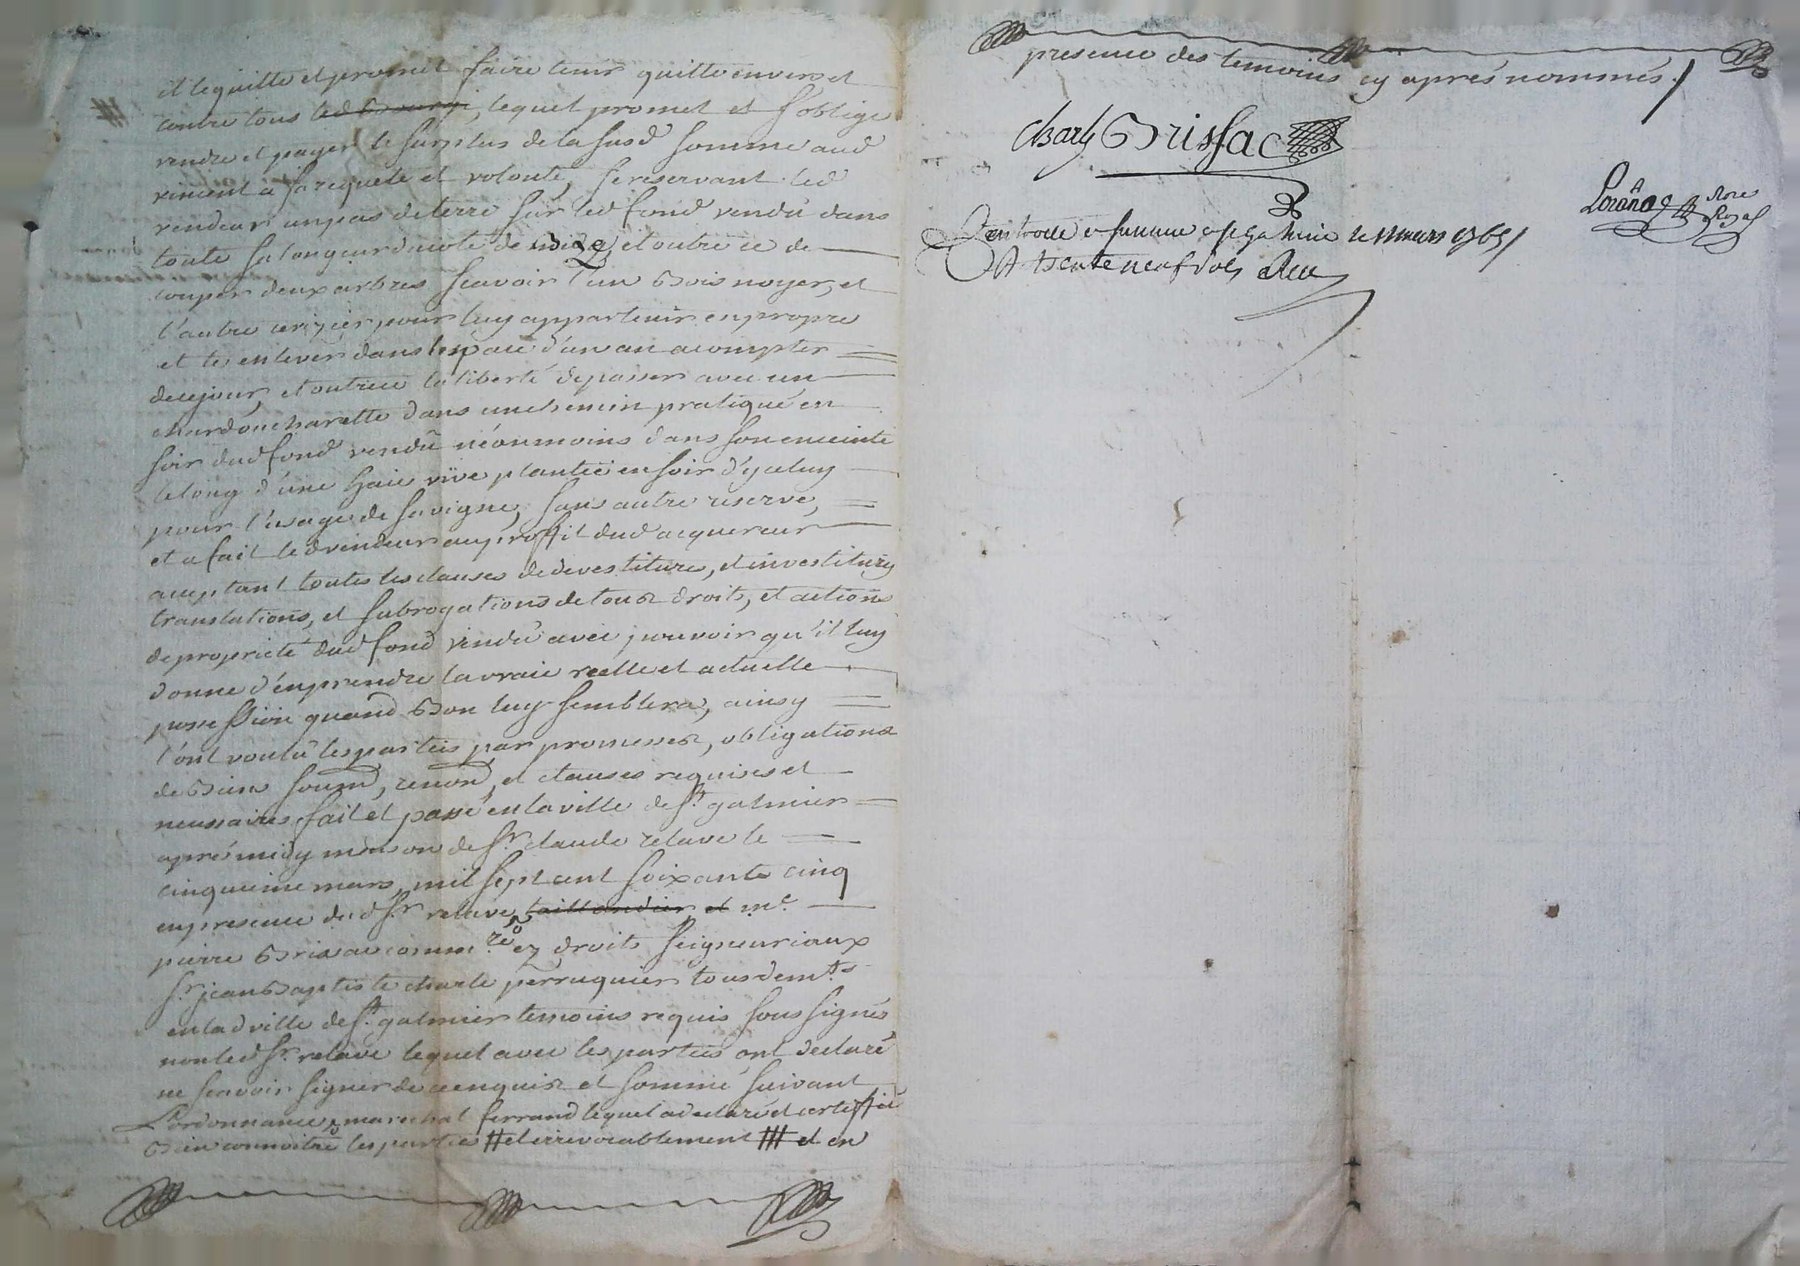 et le quitte et promet faire tenir quitte envers et
contre tous led Bourgi, lequel promet et s'oblige
rendre et payer le surplus de la susd somme aud
vincent a sa requete et volonté, se reservant led
vendeur un pas de terre sur led fond vendu dans
toute sa longueur du coté de bize, et outre ce de
couper deux arbres scavoir l'un Bois noyer, et
l'autre cerizier, pour luy appartenir en propre
et les enlever dans lespace d'un an a compter
de ce jour, et outre ce la liberté de passer avec un
char dou charette dans un chemin pratiqué en
soir dud fond vendû néonmoins dans son enceinte
le long d'une haie vive plantée en soir d'yceluy
pour l'usage de sa vigne, sans autre reserve,
et a fait led vendeur au proffit dud acquereur
acceptant toutes les clauses de devestitures, et investitures
translations, et subrogations de tous droits, et actions
de proprieté dud fond vendû avec pouvoir qu'il luy
donne d'en prendre la vraie reelle et actuelle
possession quand Bon luy semblera, ainsy
l'ont voulu les parties par promesses, obligations
de Biens soum, renond, et clauses requises et
necessaires fait et passé en la ville de St. galmier
aprés midy maison de Sr. claude relave le
cinquieme mars, mil sept cent soixante cinq
en presence dud Sr relave, taillandier, et me.
pierre Brissac commre. ez droits seigneuriaux
Sr. jean Baptiste charle perruquier tous demts
en lad ville de St. galmier temoins requis soussignés
non led Sr. relave lequel avec les parties ont declaré
ne scavoir signer de ce enquis et sommé suivant
L'ordonnance, marechal ferrand lequel a declaré et certiffié
Bien connoitre les parties # et irrevocablement ### et en
presence des temoins cy aprés nommés./
charle Brissac
Controllé et insinué a St galmier le 11 mars 1765/
R trente neuf sols